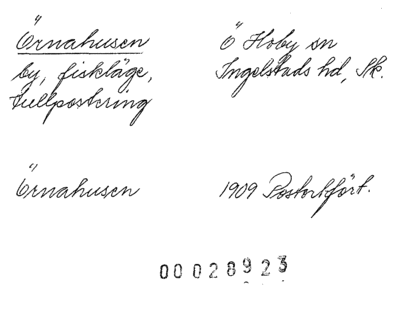 Örnahusen Ö Hoby sn
by, fiskläge, Ingelstads hd, Sk.
tullpostering
Örnahusen 1909 Postortsfört.
00028923